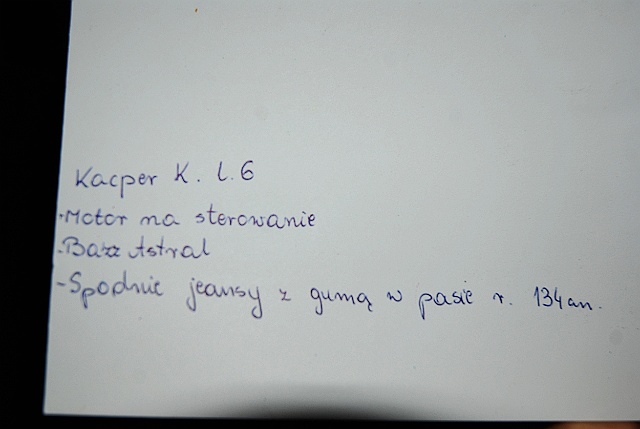 Kacper K. l. 6
- Motor na sterowanie
- Bazz Astral
- Spodnie jeansy z gumą w pasie r. 134 cm.